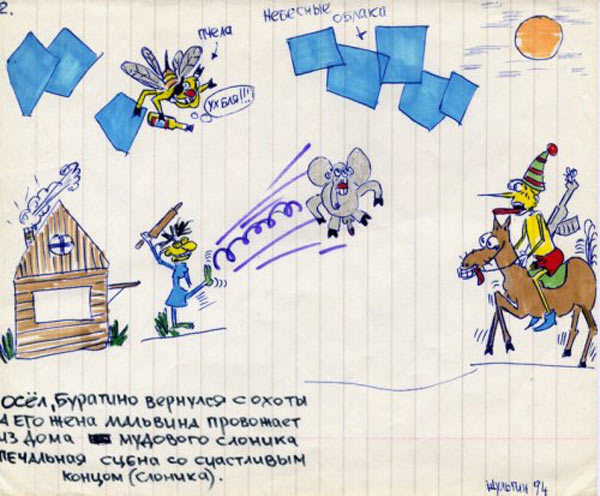 2.
ПЧЕЛА
НЕБЕСНЫЕ ОБЛАКА
УХ БЛЯ!!!
ОСЁЛ, БУРАТИНО ВЕРНУЛСЯ С ОХОТЫ
А ЕГО ЖЕНА МАЛЬВИНА ПРОВОЖАЕТ
ИЗ ДОМА МУДОВОГО СЛОНИКА
ПЕЧАЛЬНАЯ СЦЕНА СО СЧАСТЛИВЫМ
КОНЦОМ (СЛОНИКА).
ШУЛЬГИН 94